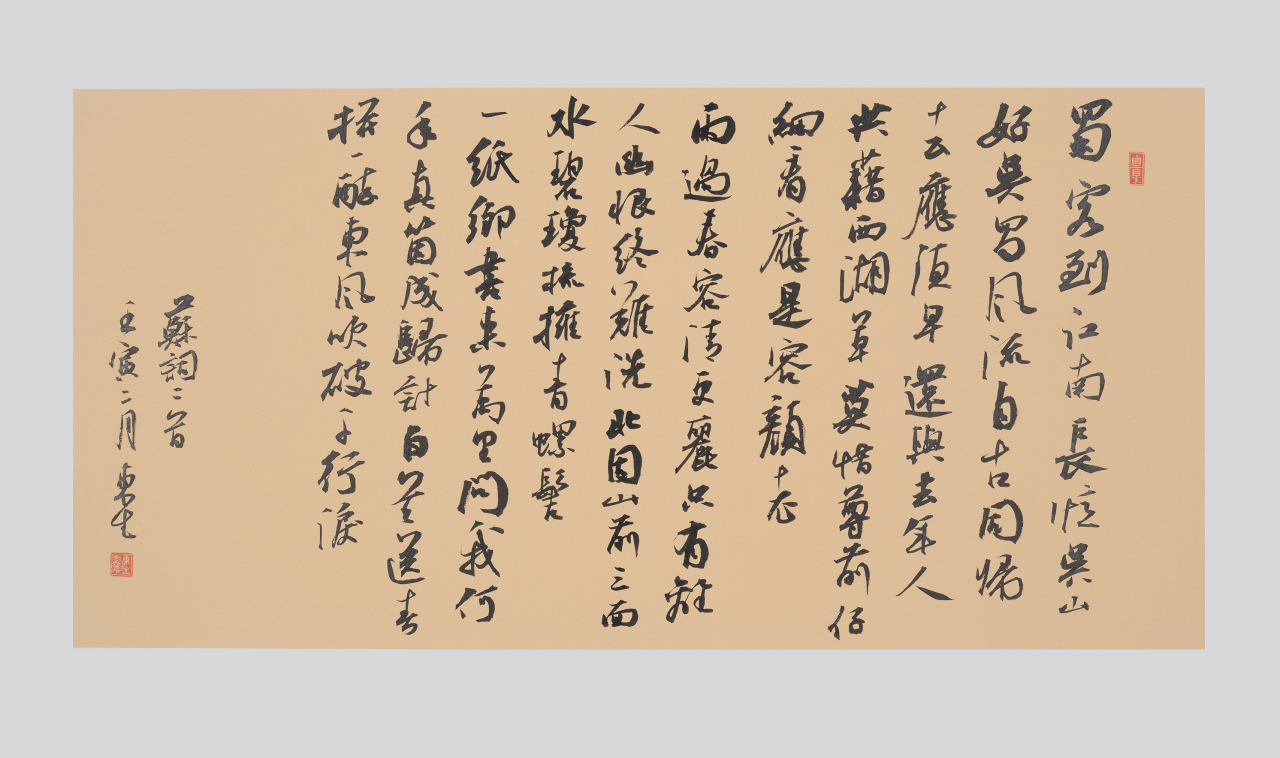 蜀客到江南長憶吳山
好吳蜀風流自古同歸
去應須早還與去年人
共藉西湖草莫惜尊前仔
細看應是容顏老
雨過春容清更麗只有離
人幽恨終難洗北固山前三面
水碧瓊梳擁青螺髻
一紙鄉書來萬里問我何
年真箇成歸計回首送春
拚一醉東風吹破千行淚
蘇詞二首
壬寅二月東生